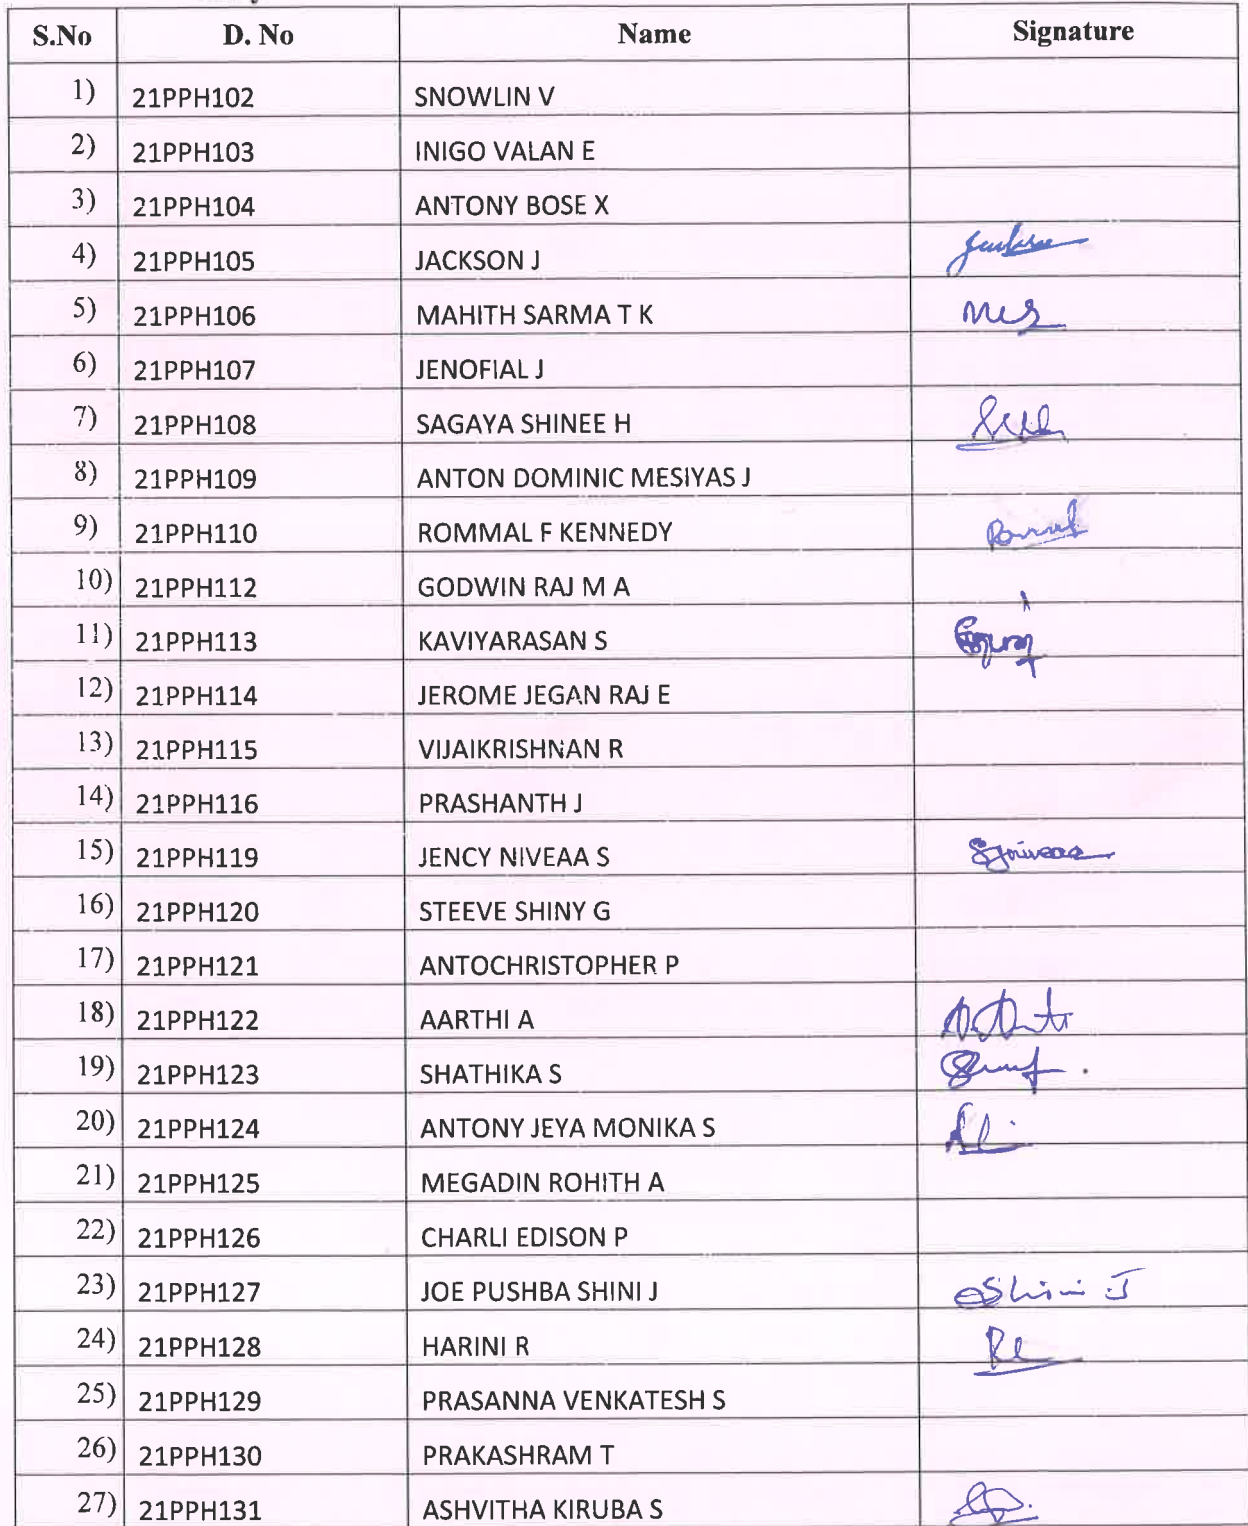 S.No D. No Name Signature
1) 21PPH102 SNOWLIN V
2) 21PPH103 INIGO VALAN E
3) 21PPH104 ANTONY BOSE X
4) 21PPH105 JACKSON J
5) 21PPH106 MAHITH SARMA T K
6) 21PPH107 JENOFIAL J
7) 21PPH108 SAGAYA SHINEE H
8) 21PPH109 ANTON DOMINIC MESIYAS J
9) 21PPH110 ROMMAL F KENNEDY
10) 21PPH112 GODWIN RAJ M A
11) 21PPH113 KAVIYARASAN S
12) 21PPH114 JEROME JEGAN RAJ E
13) 21PPH115 VIJAIKRISHNAN R
14) 21PPH116 PRASHANTH J
15) 21PPH119 JENCY NIVEAA S
16) 21PPH120 STEEVE SHINY G
17) 21PPH121 ANTOCHRISTOPHER P
18) 21PPH122 AARTHI A
19) 21PPH123 SHATHIKA S
20) 21PPH124 ANTONY JEYA MONIKA S
21) 21PPH125 MEGADIN ROHITH A
22) 21PPH126 CHARLI EDISON P
23) 21PPH127 JOE PUSHBA SHINI J Shini J
24) 21PPH128 HARINI R
25) 21PPH129 PRASANNA VENKATESH S
26) 21PPH130 PRAKASHRAM T
27) 21PPH131 ASHVITHA KIRUBA S